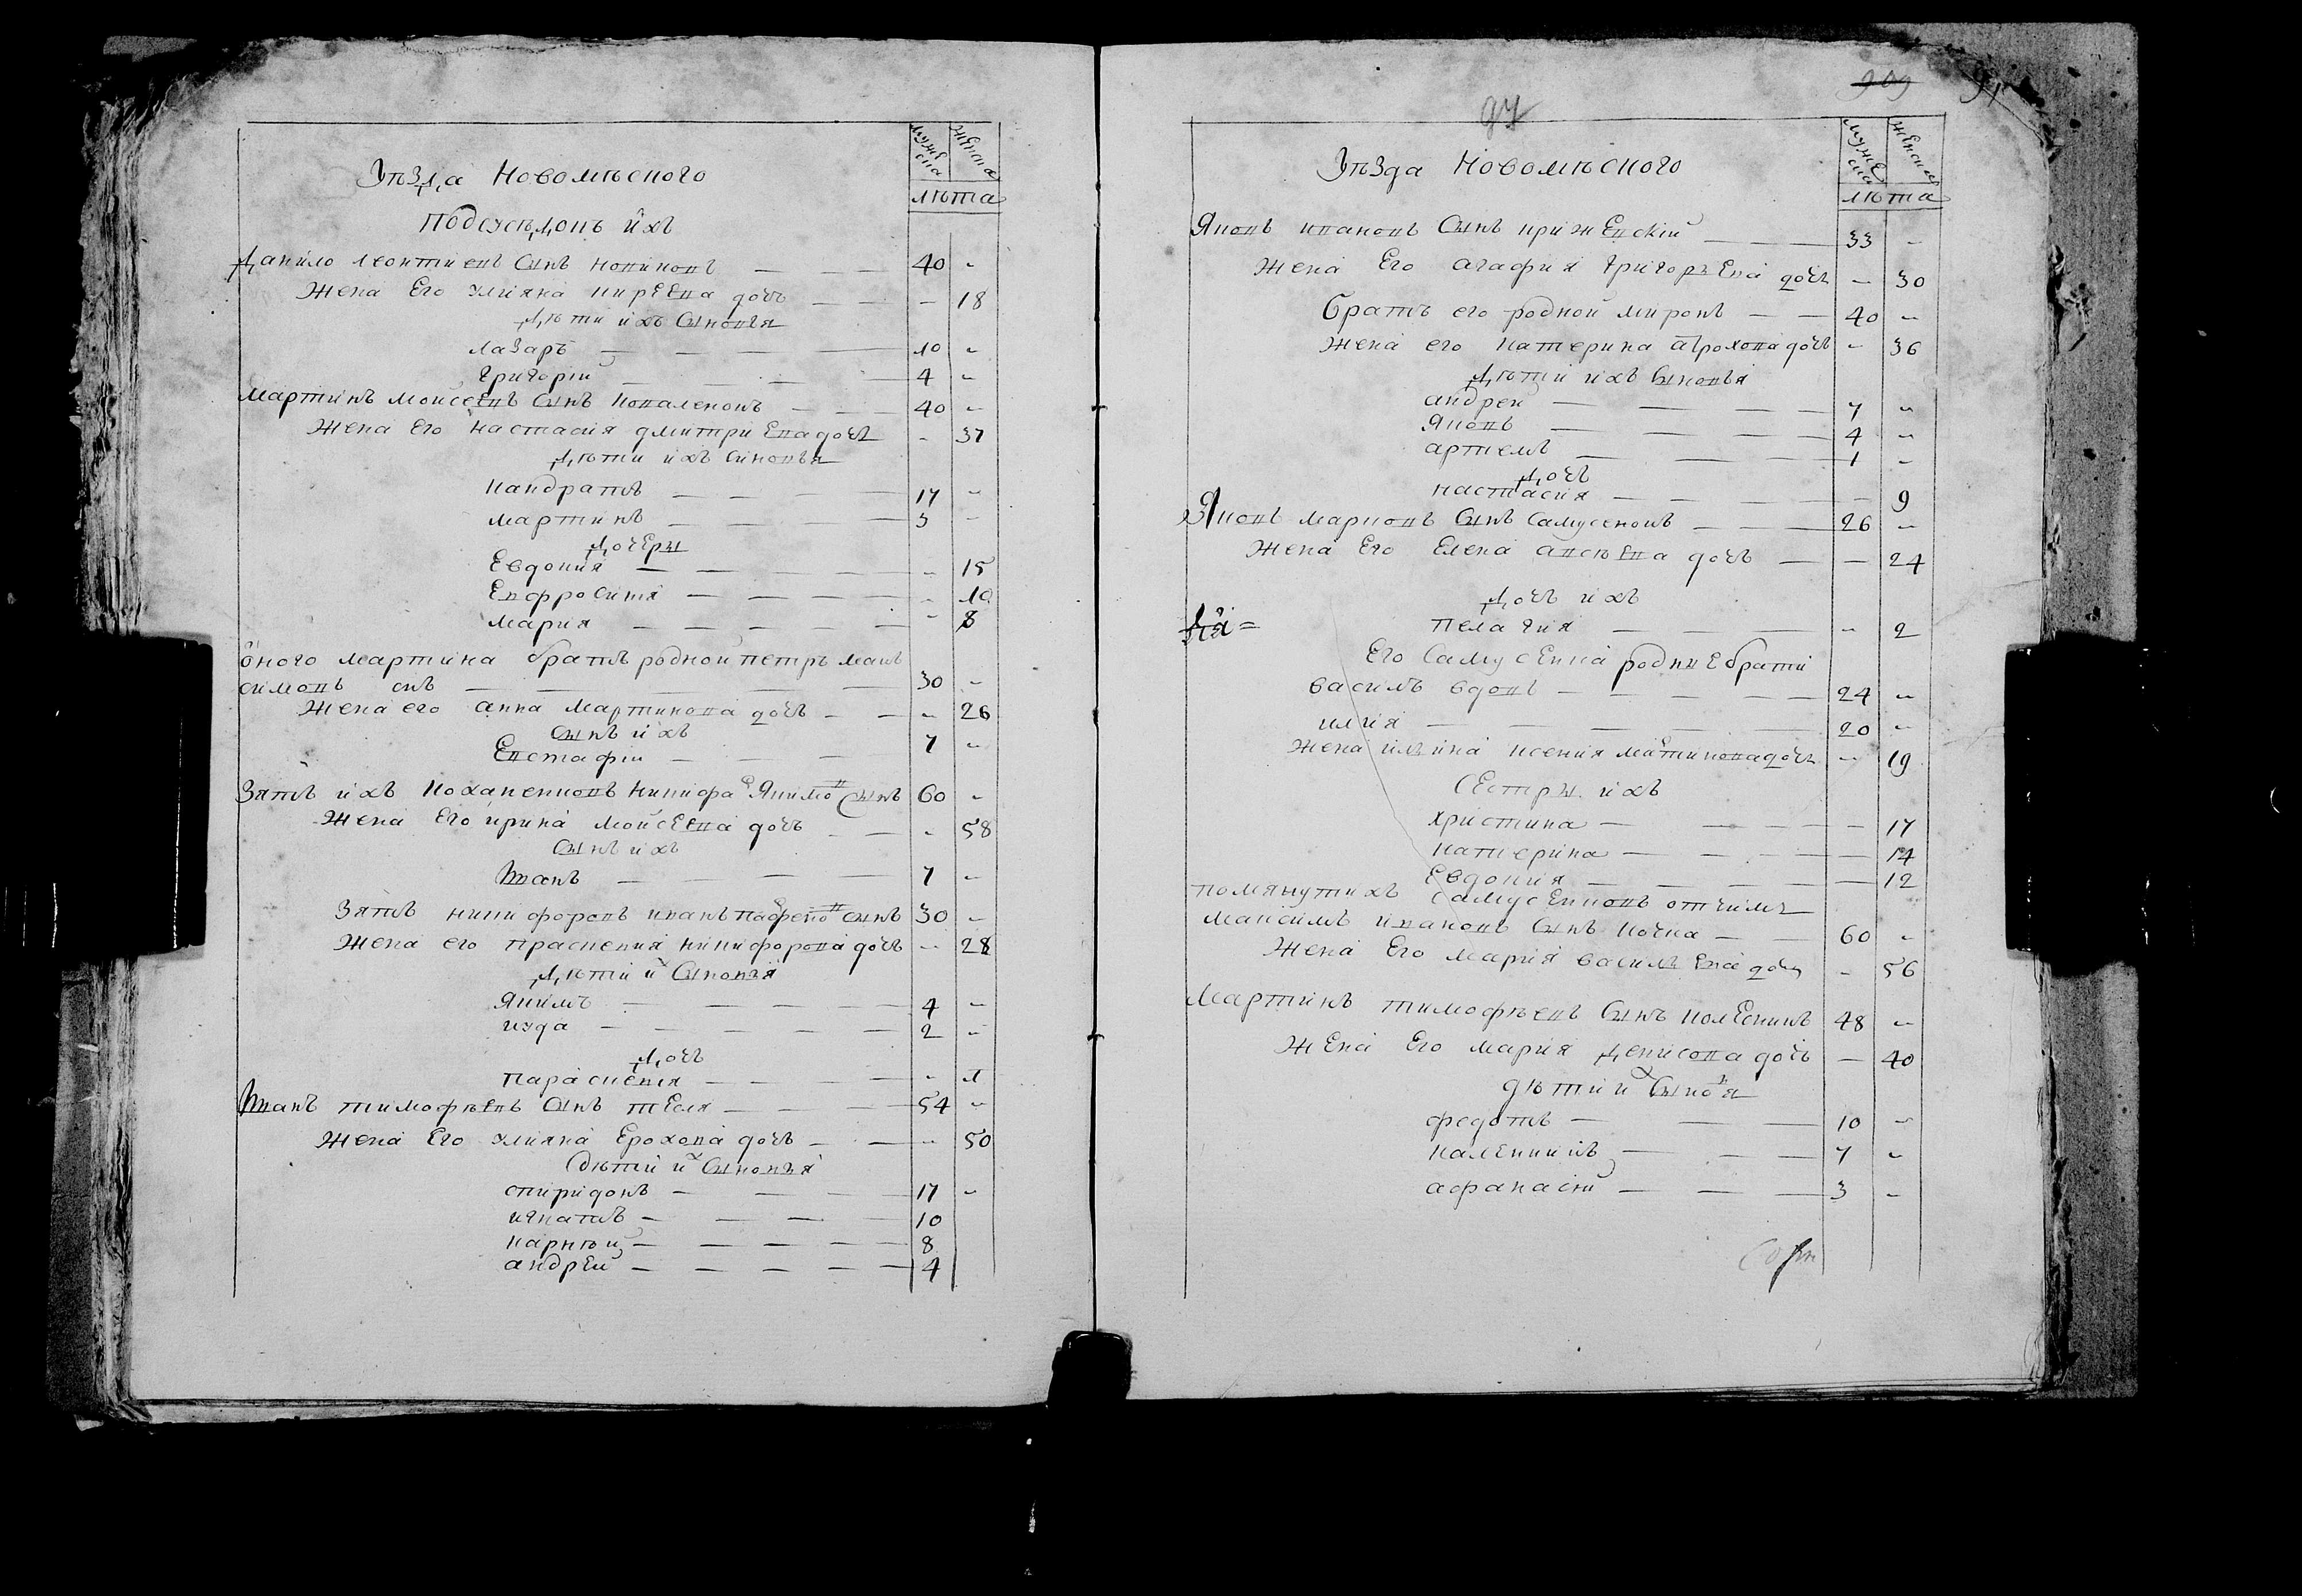 Уѣзда Новомѣского
муже ска
женска
лѣта
Подсусѣдокъ ихъ
Данило леонтиевъ Сынъ новиковъ 40 -
Жена Его улияна кирЕева дочъ - 18
Дѣти ихъ Сыновъя
лазаръ 10 -
григорій 4 -
Мартинъ мойсеЕвъ Сынъ Коваленокъ 40 -
Жена Его настасия дмитриЕва дочъ - 37
Дѣти ихъ Синовъя
кандратъ 17 -
мартинъ 3 -
ДочЕры
Евдокия - 15
Евфросиния - 10
мария - 8
оного мартина братъ родной петръ мак
симовъ снъ 30 -
Жена его анна мартинова дочъ - 26
Сынъ ихъ
Евстафій 7 -
Зять ихъ Коханенковъ никифоръ якимовъ Сынъ 60 -
Жена Его ирина МойсЕева дочъ - 58
Сынъ ихъ
Иванъ 7 -
Зять никифоровъ иванъ парфеновъ сынъ 30 -
Жена его праскевия никифорова дочъ - 28
Дѣти ихъ Сыновъя
якимъ 4 -
иуда 2 -
Дочъ
параскевия - 1
Иванъ тимофѣЕвъ Сынъ тЕсля 54 -
Жена Его улияна Ерохова дочъ - 50
Дѣти ихъ Сыновъя
спиридонъ 17 -
игнатъ 10
карнѣй 8
андрЕй 4
97
909
Уѣзда Новомѣского
муже ска
женска
лѣта
Яковъ ивановъ Сынъ крижЕвскій 33 -
Жена Его агафия григоръЕва дочъ - 30
Братъ его родной миронъ 40 -
Жена его катерина атрохова дочъ - 36
Дѣти ихъ Сыновъя
андрей 7 -
Яковъ 4 -
артемъ 1 -
Дочъ
настасия - 9
Яковъ марковъ Сынъ Самусенокъ 26 -
Жена Его Елена авсѣЕва дочъ - 24
Дочъ ихъ
пелагия - 2
Его СамусЕнка родныЕ брати
василь вдовъ 24 -
илия 20 -
Жена илъина ксения мартинова дочъ - 19
СЕстры ихъ
христина - 17
катерина - 14
Евдокия - 12
помянутихъ СамусЕнковъ отчимъ
максимъ ивановъ Сынъ Кочка 60 -
Жена Его мария василъЕва дочъ - 56
Мартинъ тимофѣевъ Сынъ колЕсникъ 48 -
ЖЕна Его мария Денисова дочъ - 40
дѣти ихъ Сыновъя
федотъ 10 -
калЕникъ 7 -
афанасій 3 -